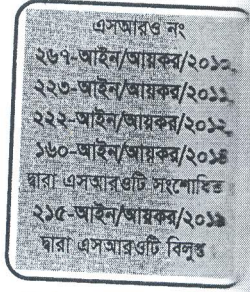 এসআরও নং
২৬৭-আইন/আয়কর/২০১০,
২২৩-আইন/আয়কর/২০১১,
২২২-আইন/আয়কর/২০১২,
১৬০-আইন/আয়কর/২০১৪
দ্বারা এসআরওটি সংশোধিত
২১৫-আইন/আয়কর/২০১৯
দ্বারা এসআরওটি বিলুপ্ত